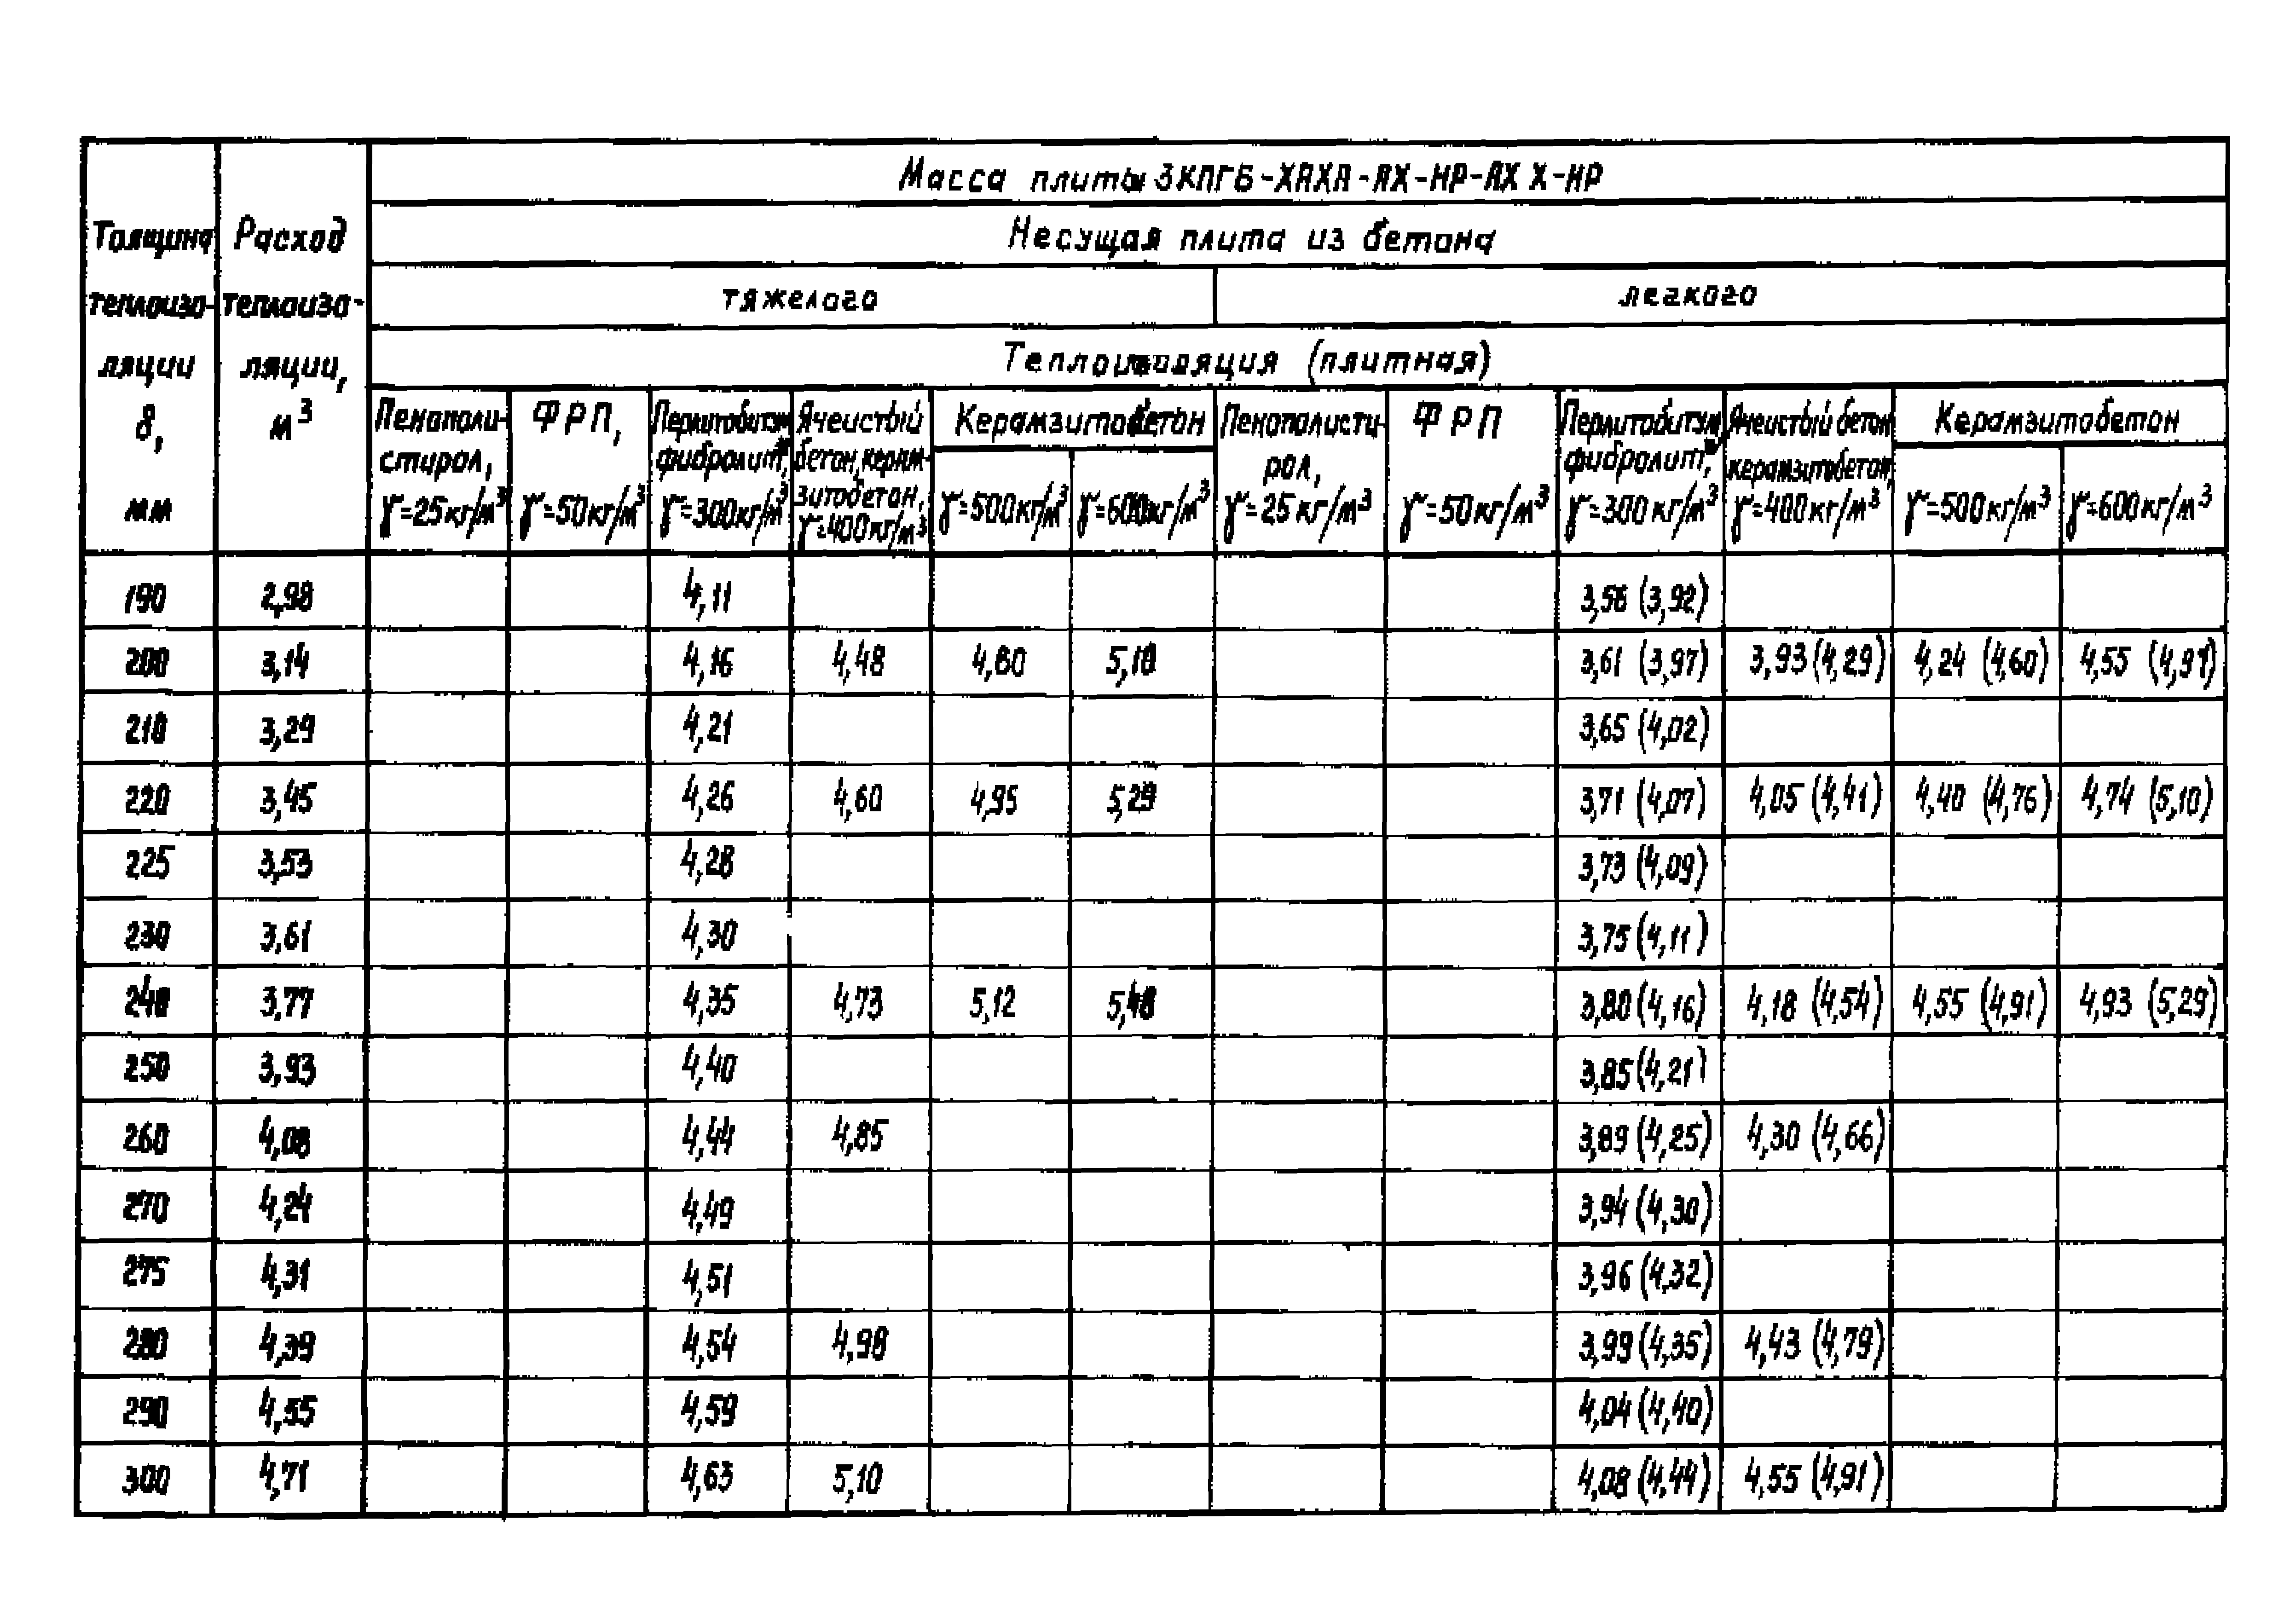 Масса плиты 3КПГ6-ХАХА-АХ-НР-АХ Х-НР
Несущая плита из бетона
тяжелого легкого
Теплоизоляция (плитная)
Толщина теплоизо- ляции δ, мм
Расход теплоизо- ляции, м³
Пенополи- стирол, γ=25кг/м³
ФРП, γ=50кг/м³
Перлитобитум фибролит, γ=300кг/м³
Ячеистый бетон, керам- зитобетон, γ=400кг/м³
Керамзитобетон
γ=500кг/м³ γ=600кг/м³
Пенополисти- рол, γ=25кг/м³
ФРП γ=50кг/м³
Перлитобитум фибролит, γ=300кг/м³
Ячеистый бетон керамзитобетон, γ=400кг/м³
Керамзитобетон
γ=500кг/м³ γ=600кг/м³
190 2,98 4,11 3,58 (3,92)
200 3,14 4,16 4,48 4,80 5,10 3,61 (3,97) 3,93 (4,29) 4,24 (4,60) 4,55 (4,91)
210 3,29 4,21 3,65 (4,02)
220 3,45 4,26 4,60 4,95 5,29 3,71 (4,07) 4,05 (4,41) 4,40 (4,76) 4,74 (5,10)
225 3,53 4,28 3,73 (4,09)
230 3,61 4,30 3,75 (4,11)
240 3,77 4,35 4,73 5,12 5,48 3,80 (4,16) 4,18 (4,54) 4,55 (4,91) 4,93 (5,29)
250 3,93 4,40 3,85 (4,21)
260 4,08 4,44 4,85 3,89 (4,25) 4,30 (4,66)
270 4,24 4,49 3,94 (4,30)
275 4,31 4,51 3,96 (4,32)
280 4,39 4,54 4,98 3,99 (4,35) 4,43 (4,79)
290 4,55 4,59 4,04 (4,40)
300 4,71 4,63 5,10 4,08 (4,44) 4,55 (4,91)